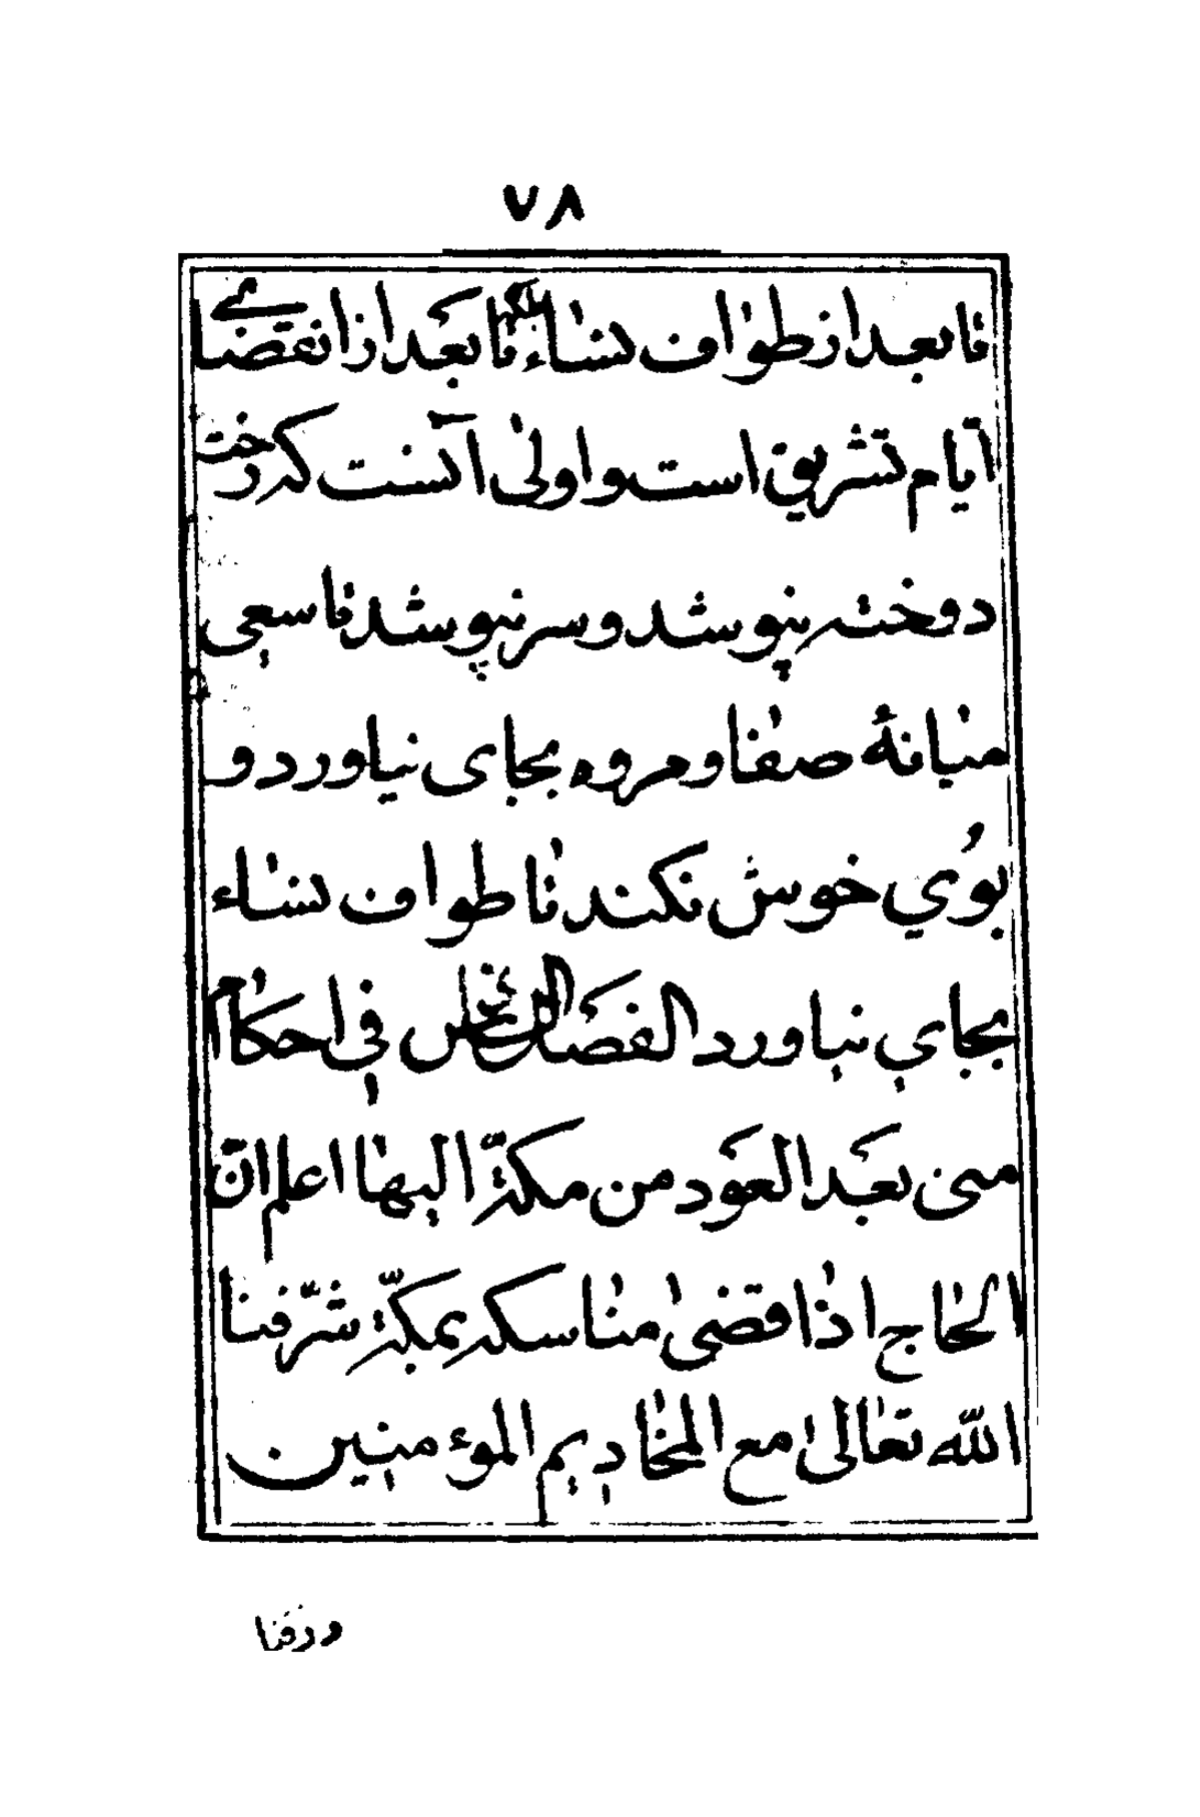 ٧٨
تا بعد از طواف نساء بلکه تا بعد از انقضای
ایام تشریق است و اولی آنست که رخت
دوخته نپوشد و سر نپوشد تا سعی
میانهٔ صفا و مروه بجای نیاورد و
بوُی خوش نکند تا طواف نساء
بجای نیاورد الفصل الخامس فی احکام
منی بعَد العَود من مکّة الیها اعلم انّ
الحاج اذا قضیٰ مناسکه بمکّة شرّفنا
اللّه تعالیٰ مع المخادیم المؤمنین
ورزقنا